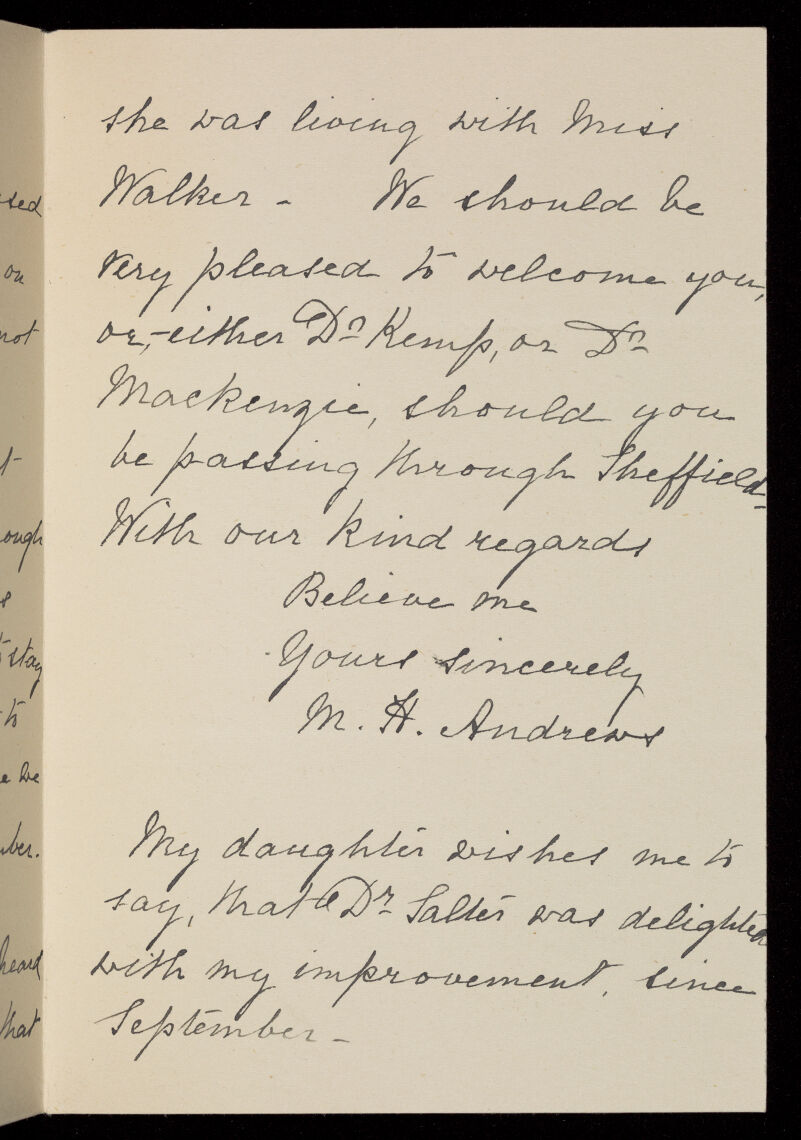 she was living with Miss
Walker - We should be
very pleased to welcome you,
or, - either Dr Kemp, or Dr
Mackenzie, should you
be passing through Sheffield -
With our kind regards
Believe me
Yours sincerely
M. H. Andrews
My daughter wishes me to
say, that Dr Salter was delighted
with my improvement, since
September -
sed
on
not
t-
ough
s
stay
to
e we
ber.
heard
that